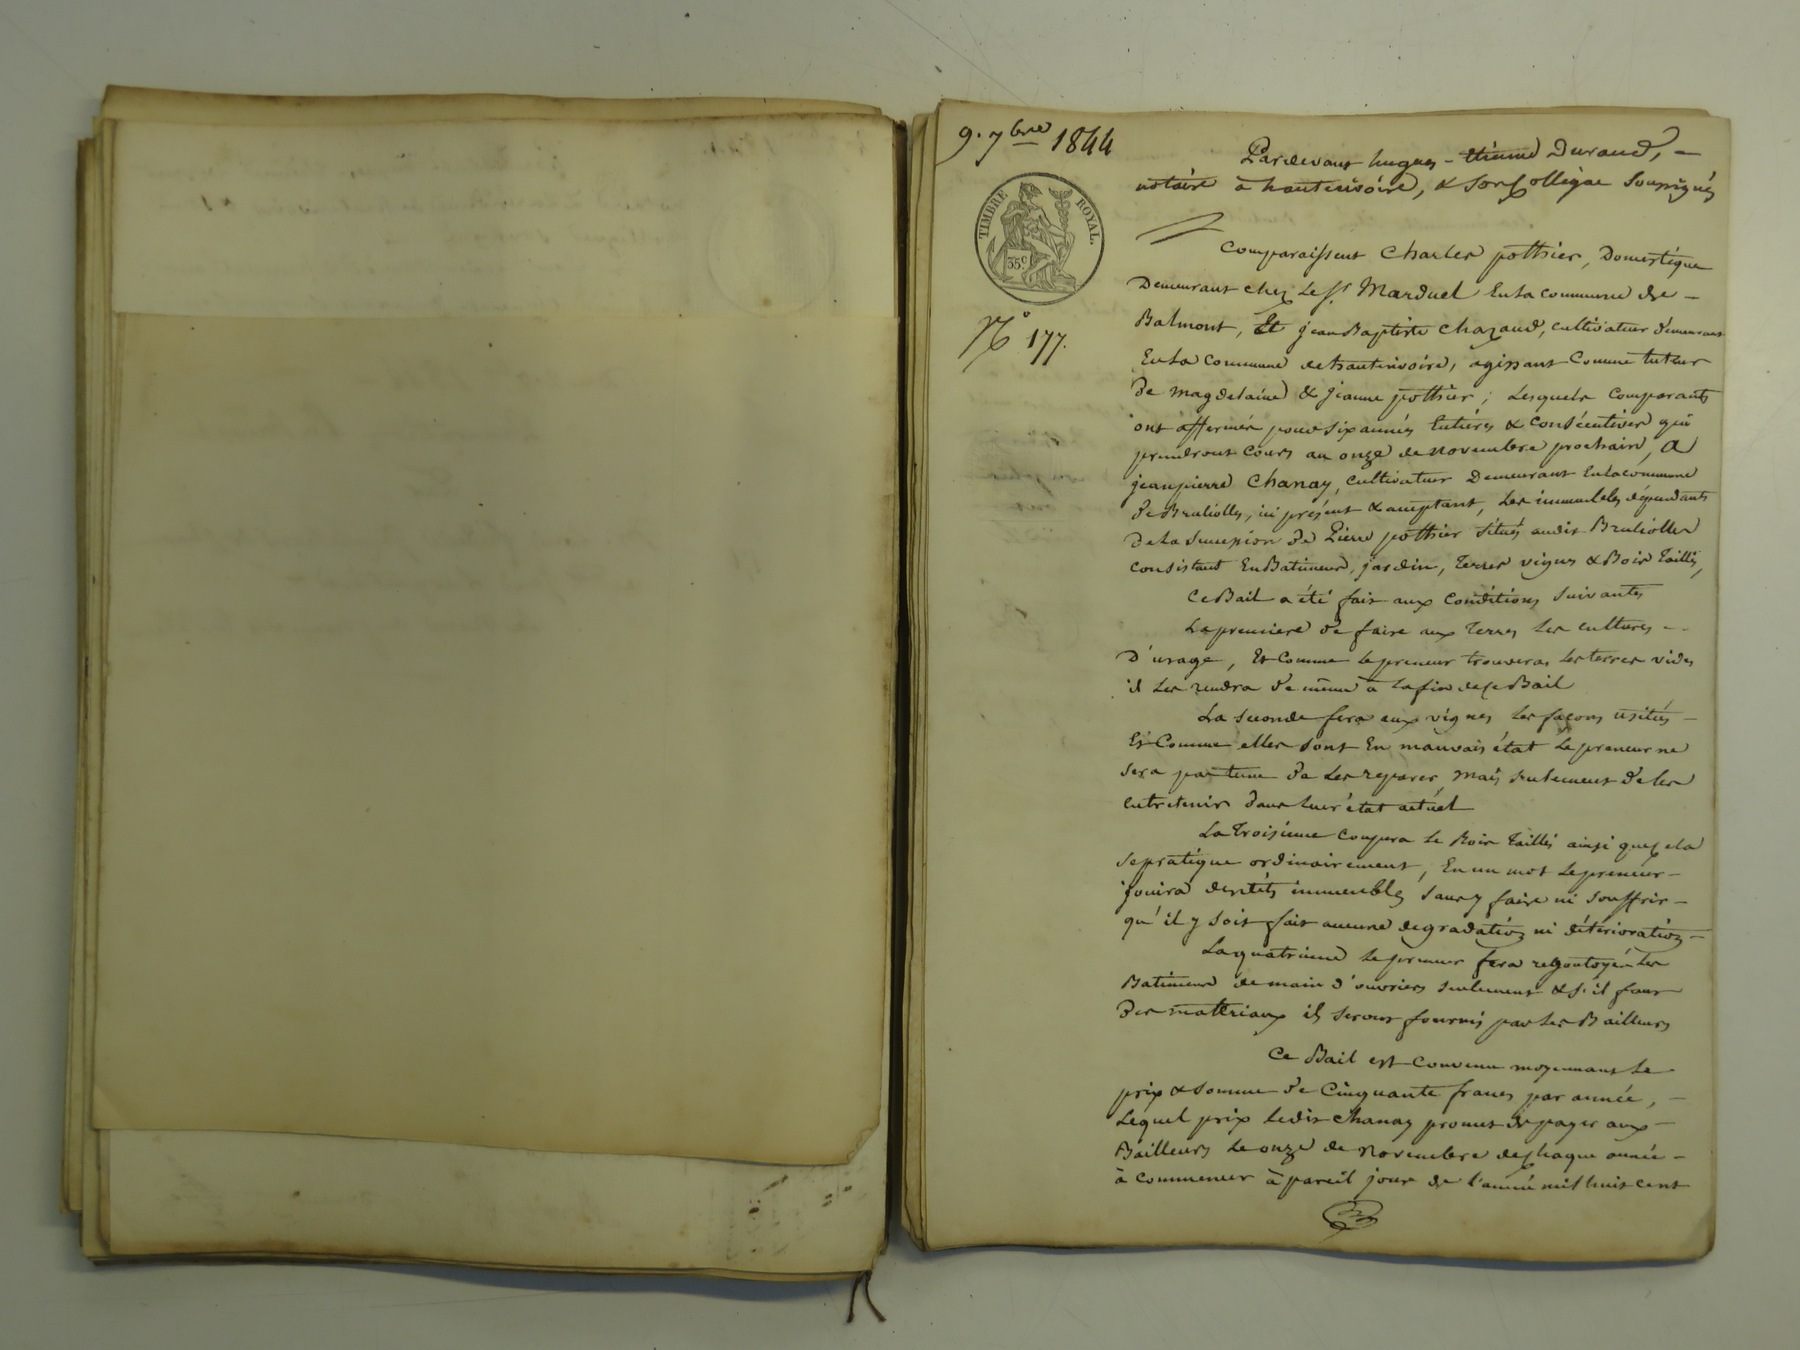 9. 7bre 1844
TIMBRE ROYAL
35c
No 177.
Pardevant hugues - étienne Durand, -
notaire à hauterivoire, & son Collègue soussignés
Comparaissent Charles pothier, Domestique
Demeurant chez Le Sr. Marduel En la commune de -
Balmont, Et jean Baptiste Chazaud, cultivateur demeurant
En La Commune de hauterivoire, agissant Comme tuteur
de magdelaine & jeanne pothier ; Lesquels Comparants
ont affermés pour six années Entières & Consécutives qui
prendront Cours au onze de novembre prochain, A
jean pierre Chanay, Cultivateur Demeurant En la commune
de Brulliolles, ici présent & acceptant, Les immeubles dépendants
De La Succession de Pierre pothier situés audit Brulliolles
Consistant En Batiments, jardin, Terres vignes & Bois Taillis,
Ce Bail a été fait aux Conditions suivantes
La premiere de faire aux Terres Les cultures -
D'usage, Et Comme Le preneur trouveras Les terres vides
il Les rendra de même à La fin de ce Bail
La seconde fera aux vignes Les façons usités -
Et Comme elles sont En mauvais état Le preneur ne
sera pas tenu de Les reparer, Mais seulement de les
entretenir dans leur état actuel
La Troisième Coupera Le Bois Taillis ainsi que cela
se pratique ordinairement, En un mot Le preneur -
jouira desdits immeubles sans y faire ni souffrir -
qu'il y soit fait aucune dégradation ni détérioration -
La quatrième Le preneur fera Les
Batiments de main d'ouvriers seulement & s'il faut
Des matteriaux ils seront fournis par Les Bailleurs
Ce Bail est Convenu moyennant Le
prix & somme de Cinquante francs par année, -
Lequel prix Ledit Chanay promet de payer aux -
Bailleurs Le onze de Novembre de chaque année -
à Commencer à pareil jour de l'année mil huit cent